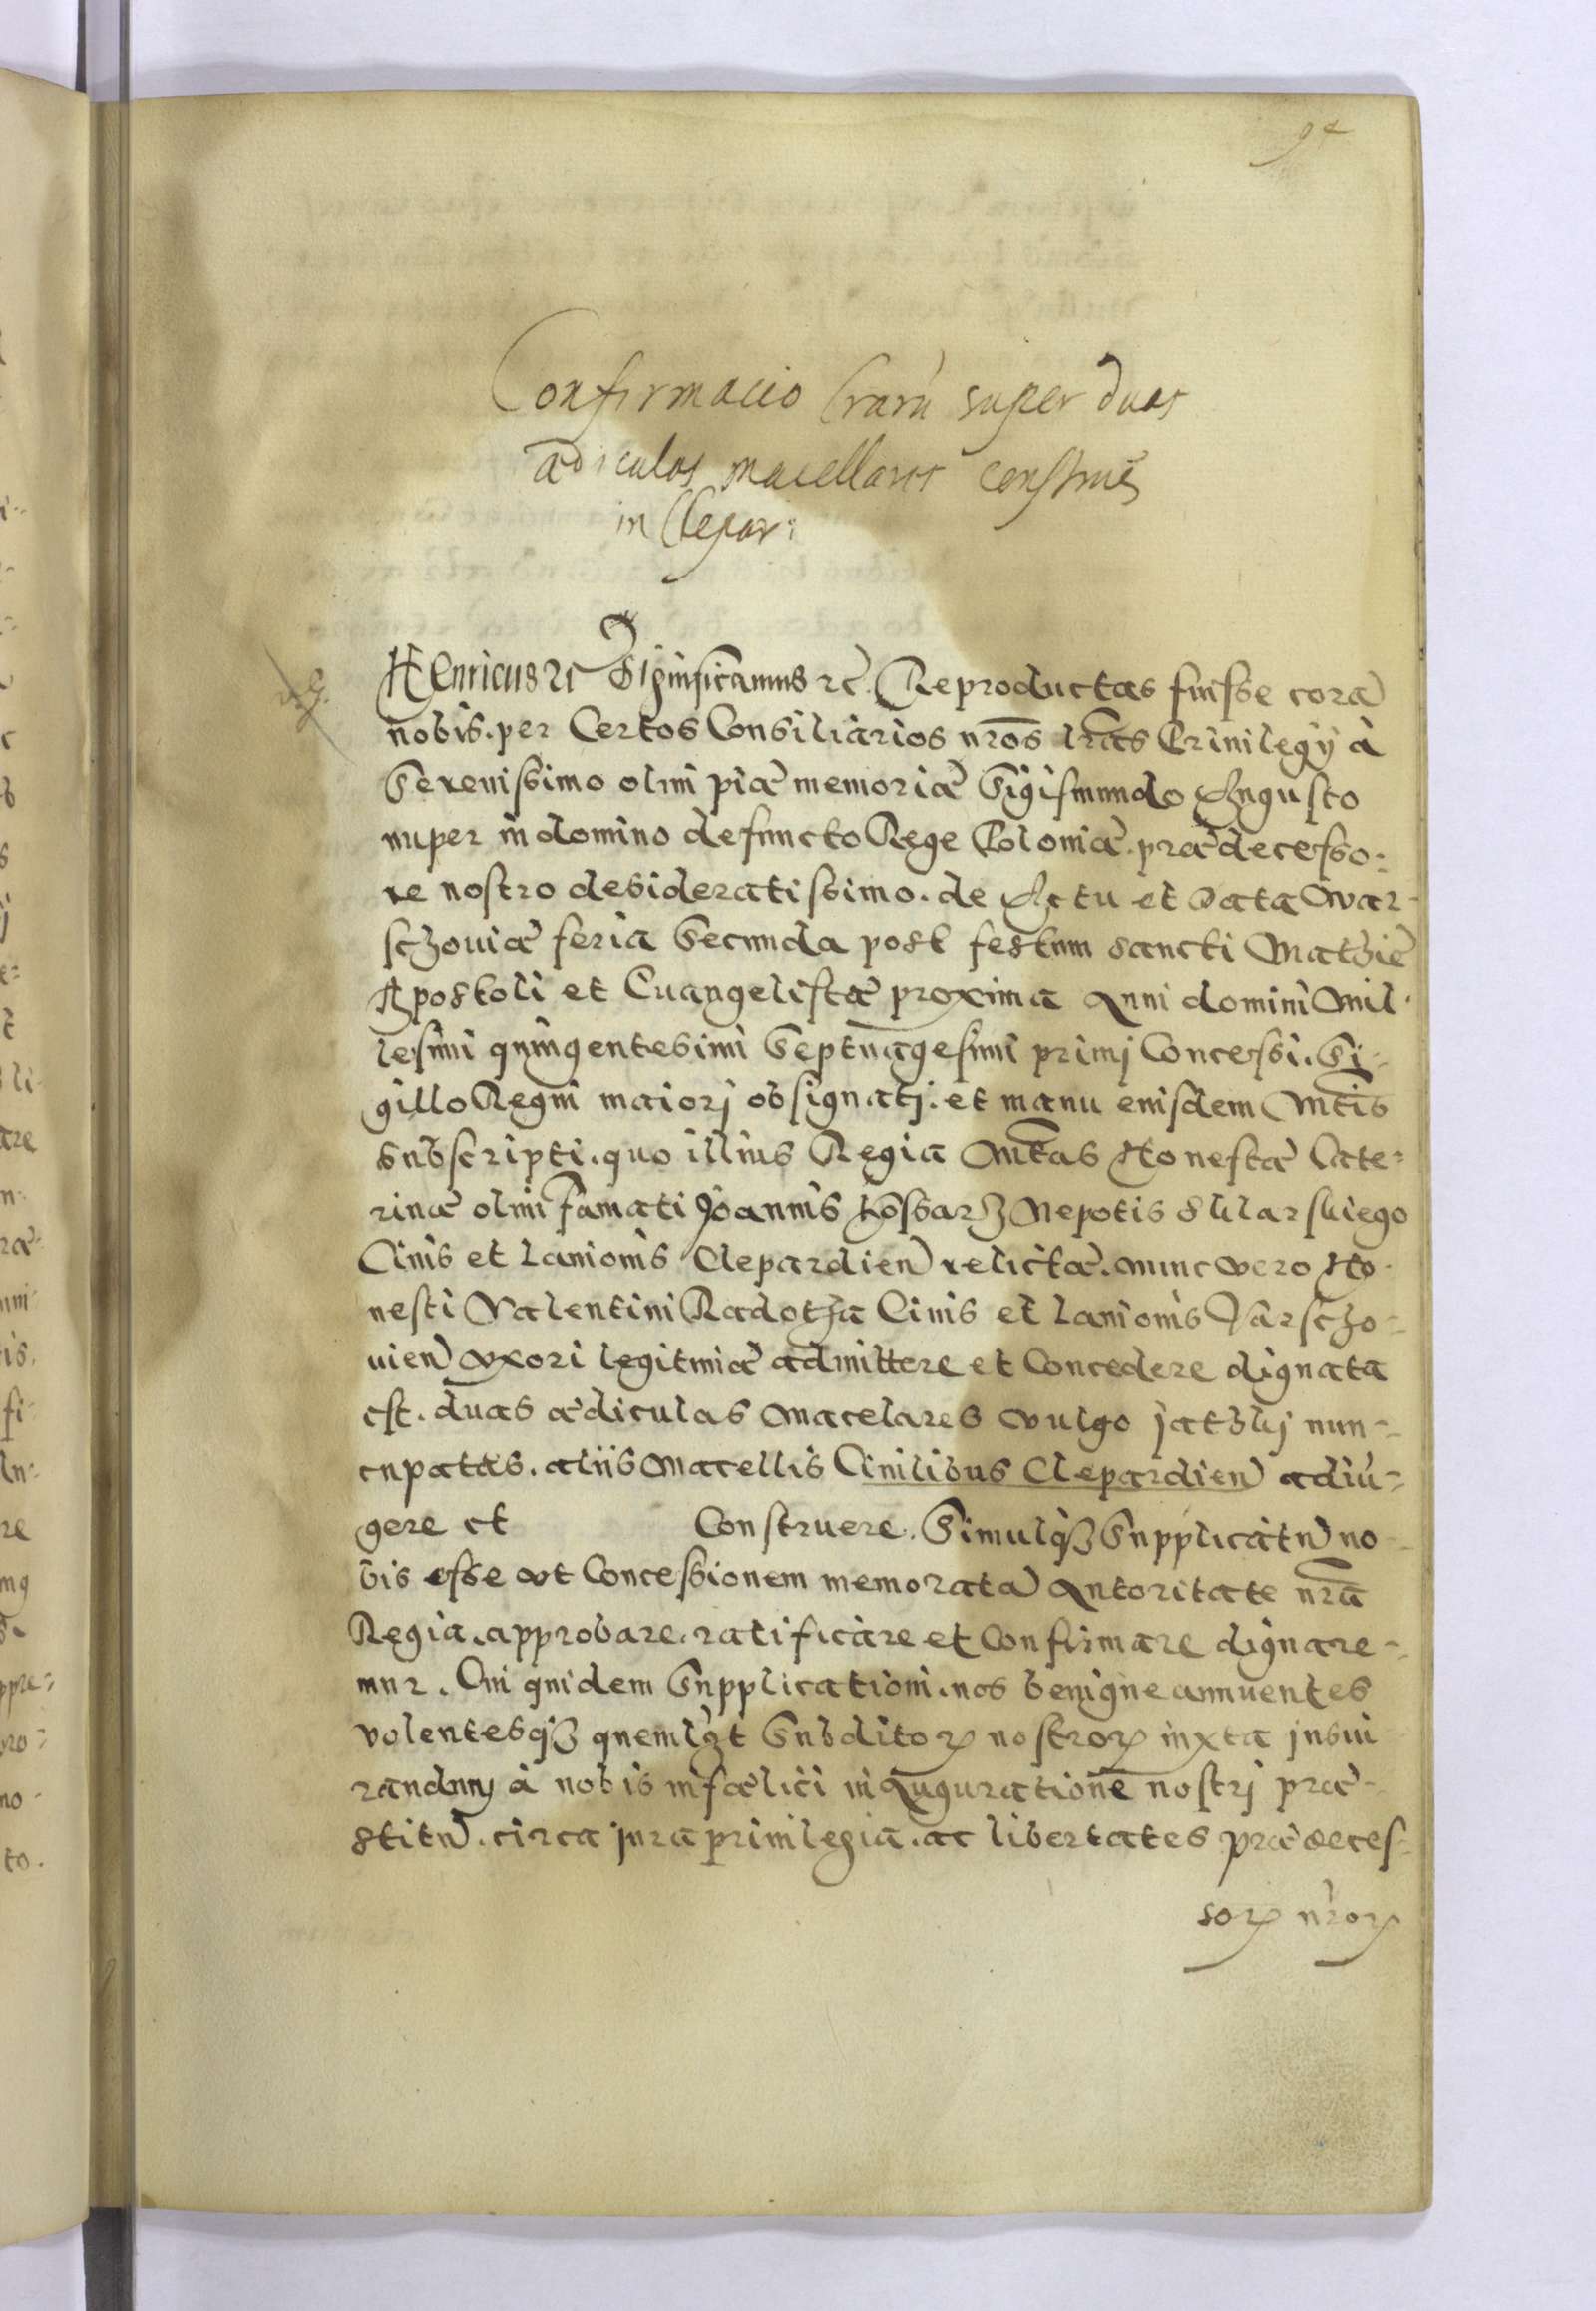 94
Confirmacio lrarũ super duas
ædiculas macellares construẽ
in Clepar:
HEnricus ꝛc Significamus ꝛc. Reproductas fuisse corã
nobis. per Certos Consiliarios nr̃os lr̃as Priuilegÿ à
Serenissimo olim piæ memoriæ Sigismundo Augusto
nuper in domino defuncto Rege Poloniæ. prædecesso-
re nostro desideratissimo. de Actu et Data War-
schouiæ feria Secunda post festum sancti Mathie
Apostoli et Euangelistæ proxima Anni domini Mil-
lesimi quingentesimi Septuagesimi primj Concessi. Si-
gillo Regni maiorj obsignatj. et manu eiusdem Mt̃is
subscripti. quo illius Regia Mt̃as Honestæ Cate-
rinæ olim famati Joannis Nepotis
Ciuis et lanionis Clepardien̄ relictæ. nunc vero Ho-
nesti Valentini Radotha Ciuis et lanionis Varscho-
uien̄ vxori legitimæ admittere et Concedere dignata
est. duas ædiculas macelares vulgo jathkj nun-
cupatas. aliis Macellis Ciuilibus Clepardien̄ adiũ-
gere et Construere. Simulqꝫ Supplicatũ no-
bis esse vt Concessionem memoratã Autoritate nr̃a
Regia. approbare. ratificare et Confirmare dignare-
mur. Cui quidem Supplicationi. nos benigne annuentes
volentesqꝫ quemlꝫt Subditoꝝ nostroꝝ iuxta jusiu
randum à nobis in fælici inauguratione nostrj præ-
stitũ. circa jura priuilegia. ac libertates prædeces-
soꝝ nr̃oꝝ